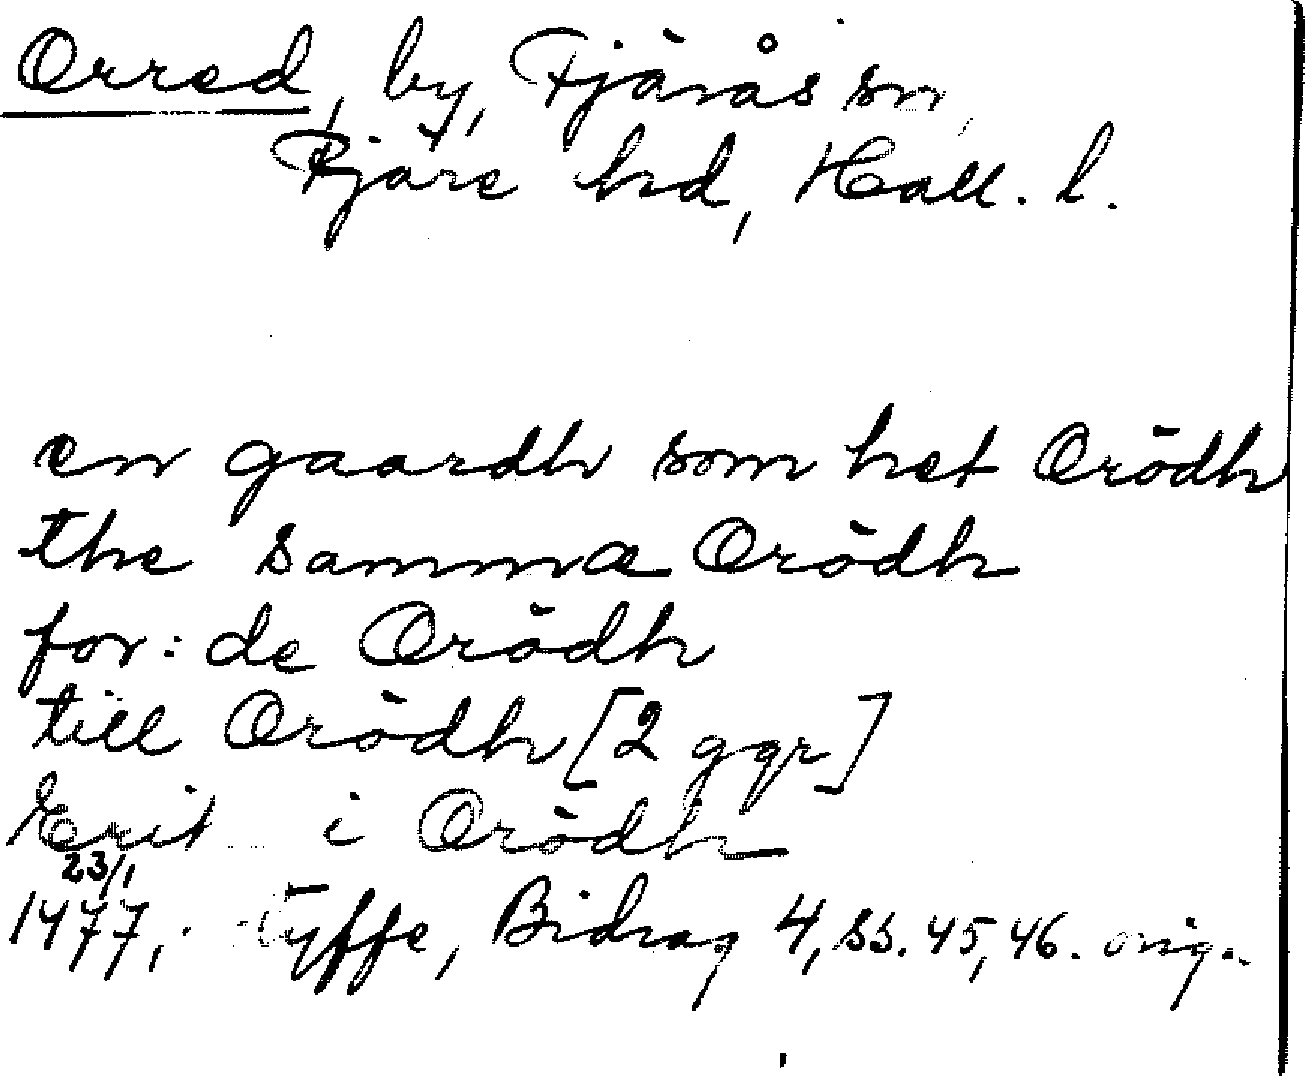 Orred, by, Fjärås sn,
Fjäre hd, Hall. l.
en gaardh som het Orödh
the samma Orödh
for: de Orödh
till Orödh [2 ggr]
i Orödh
23/1
1477, Styffe, Bidrag 4, ss. 45, 46. orig.